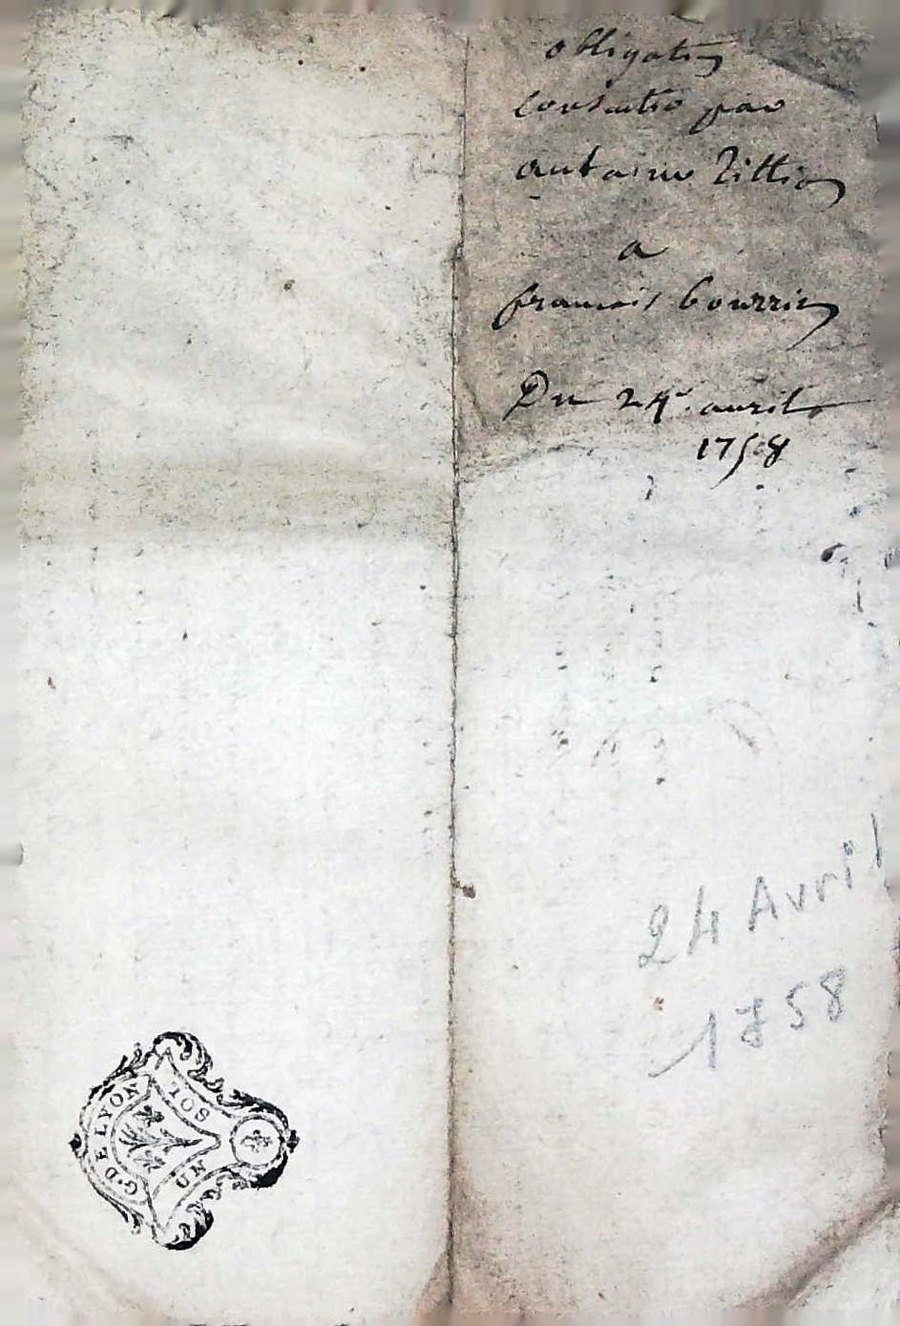 obligation
consentie par
antoine Tillion
a
francois bourrin
Du 24e. avril
1758
24 Avril
1758
G. DE LYON
UN SOL